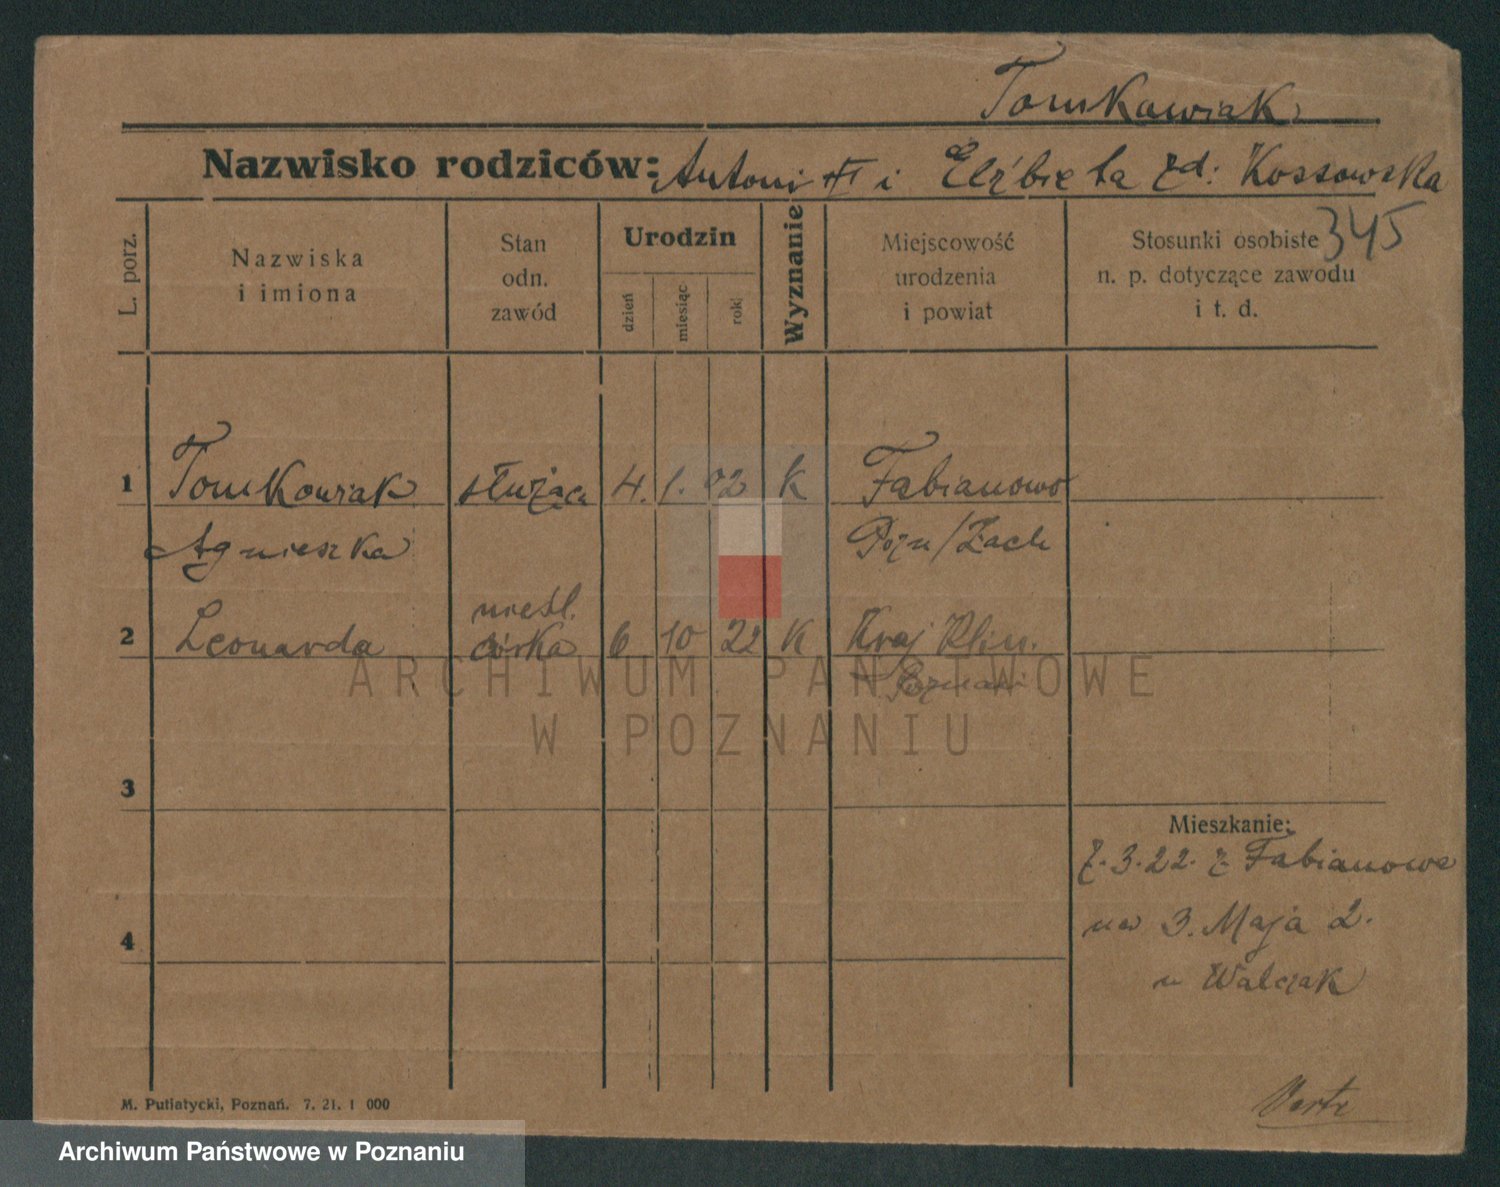 Tomkowiak
Nazwisko rodziców: Antoni i Elżbieta zd: Kossowska
345
L. porz.
Nazwiska
i imiona
Stan
odn.
zawód
Urodzin
dzień
miesiąc
rok
Wyznanie
Miejscowość
urodzenia
i powiat
Stosunki osobiste
n. p. dotyczące zawodu
i t. d.
1 Tomkowiak służąca 4. 1. 02 k Fabianowo
Agnieszka Pozn/Zach
2 Leonarda nieśl.
córka 6 10 22 k Kraj Klin.
Poznań
3
4
Mieszkanie:
7.3.22. z Fabianowa
na 3. Maja 2.
u Walczak
Verte
M. Putiatycki, Poznań. 7. 21. 1 000
ARCHIWUM PAŃSTWOWE
W POZNANIU
Archiwum Państwowe w Poznaniu